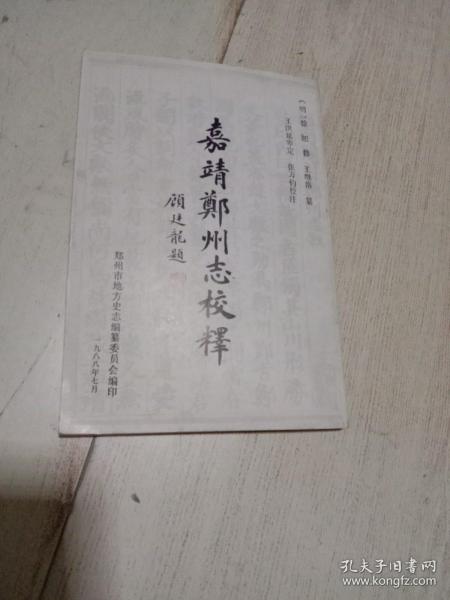 〔明〕徐恕修 王继洛纂
王洪延审定 张万钧校注
嘉靖鄭州志校釋
顧廷龍題
郑州市地方史志编纂委员会编印
一九八八年七月
孔夫子旧书网
www.kongfz.com